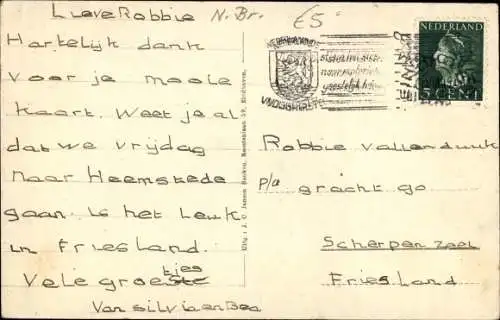 Lieve Robbie
N. Br.
£5
Hartelijk dank
voor je mooie
kaart. Weet je al
dat we vrijdag
naar Heemstede
gaan. is het leuk
in Friesland.
Vele groeste
tjes
van silvia en Bea
Uitg.: J. C Janson
Eindhoven.
NEDERLAND
5 CENT
EINDH
Robbie Vallenduuk
p/a gracht 90
Scherpenzeel
Friesland